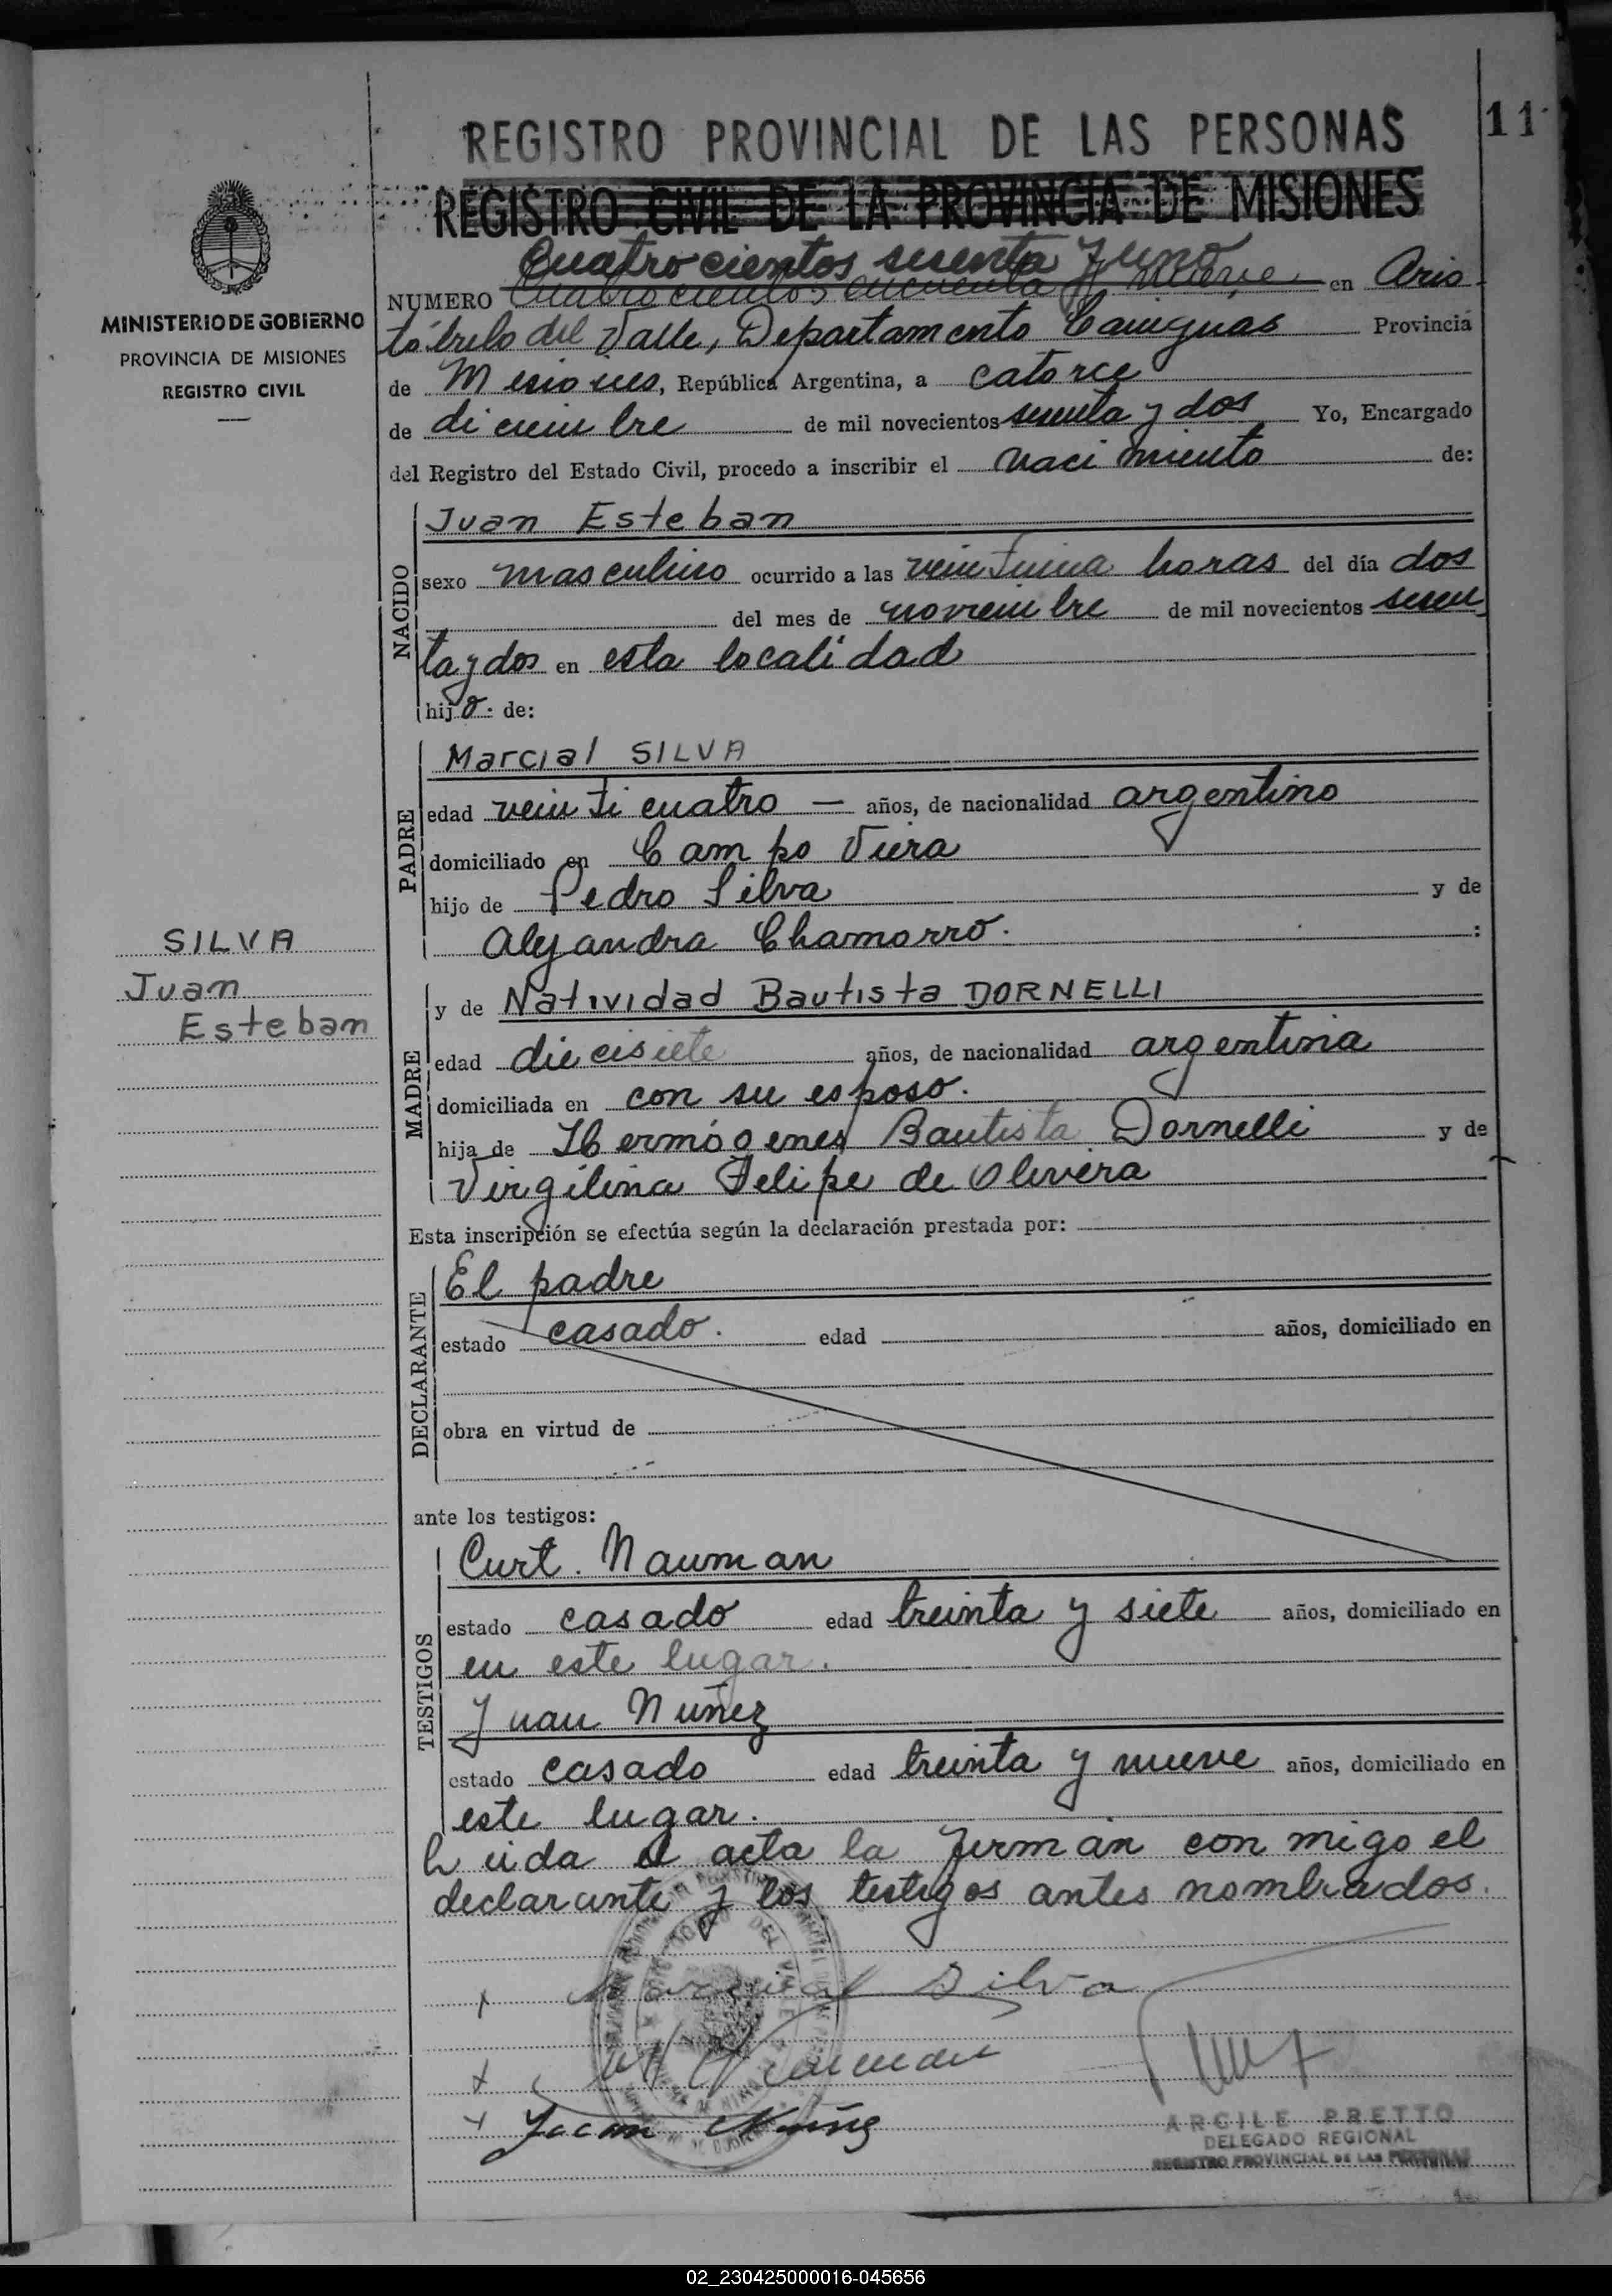 11
REGISTRO PROVINCIAL DE LAS PERSONAS
REGISTRO CIVIL DE LA PROVINCIA DE MISIONES
MINISTERIO DE GOBIERNO
PROVINCIA DE MISIONES
REGISTRO CIVIL
Quatrocientos sesenta y uno
NUMERO Cuatrocientos cincuenta y nueve en Aris
tóbulo del Valle, Departamento Cainguas Provincia
de Misiones, República Argentina, a catorce
de diciembre de mil novecientos sesenta y dos Yo, Encargado
del Registro del Estado Civil, procedo a inscribir el nacimiento de:
NACIDO
Juan Esteban
sexo masculino ocurrido a las veintiuna horas del día dos
del mes de noviembre de mil novecientos sesen
ta y dos en esta localidad
hijo de:
PADRE
Marcial SILVA
edad veinticuatro — años, de nacionalidad argentino
domiciliado en Campo Viera
hijo de Pedro Silva y de
Alejandra Chamorro. :
SILVA
Juan
Esteban
MADRE
y de Natividad Bautista DORNELLI
edad diecisiete años, de nacionalidad argentina
domiciliada en con su esposo.
hija de Hermógenes Bautista Dornelli y de
Virgilina Felipe de Olivera
Esta inscripción se efectúa según la declaración prestada por:
DECLARANTE
El padre
estado casado. edad años, domiciliado en
obra en virtud de
ante los testigos:
TESTIGOS
Curt. Nauman
estado casado edad treinta y siete años, domiciliado en
en este lugar.
Juan Nuñez
estado casado edad treinta y nueve años, domiciliado en
este lugar.
Leida el acta la firman con migo el
declarante y los testigos antes nombrados.
x Marcial Silva
x Nauman
x Juan Nuñez
ARGILE PRETTO
DELEGADO REGIONAL
REGISTRO PROVINCIAL DE LAS PERSONAS
02_230425000016-045656